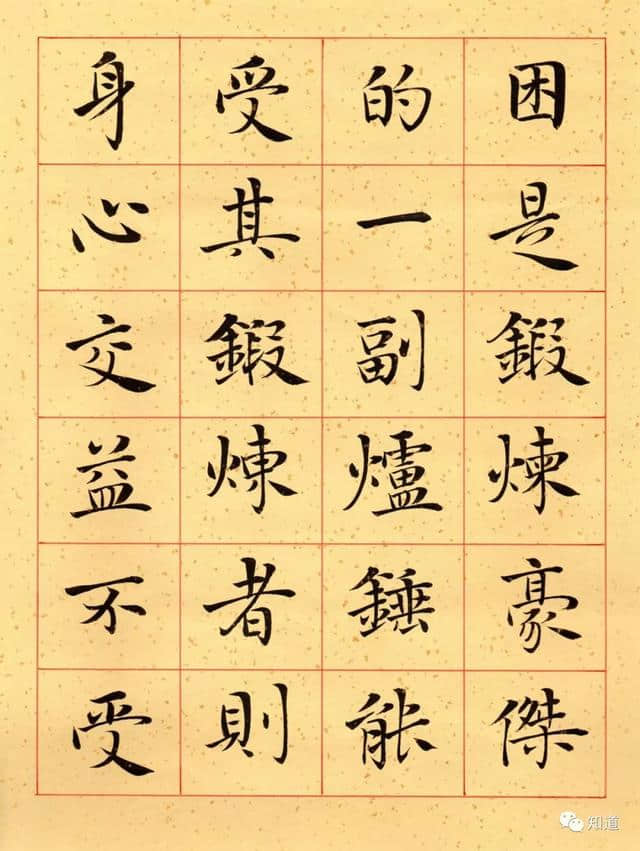 困是鍛煉豪傑
的一副爐錘能
受其鍛煉者則
身心交益不受
知道